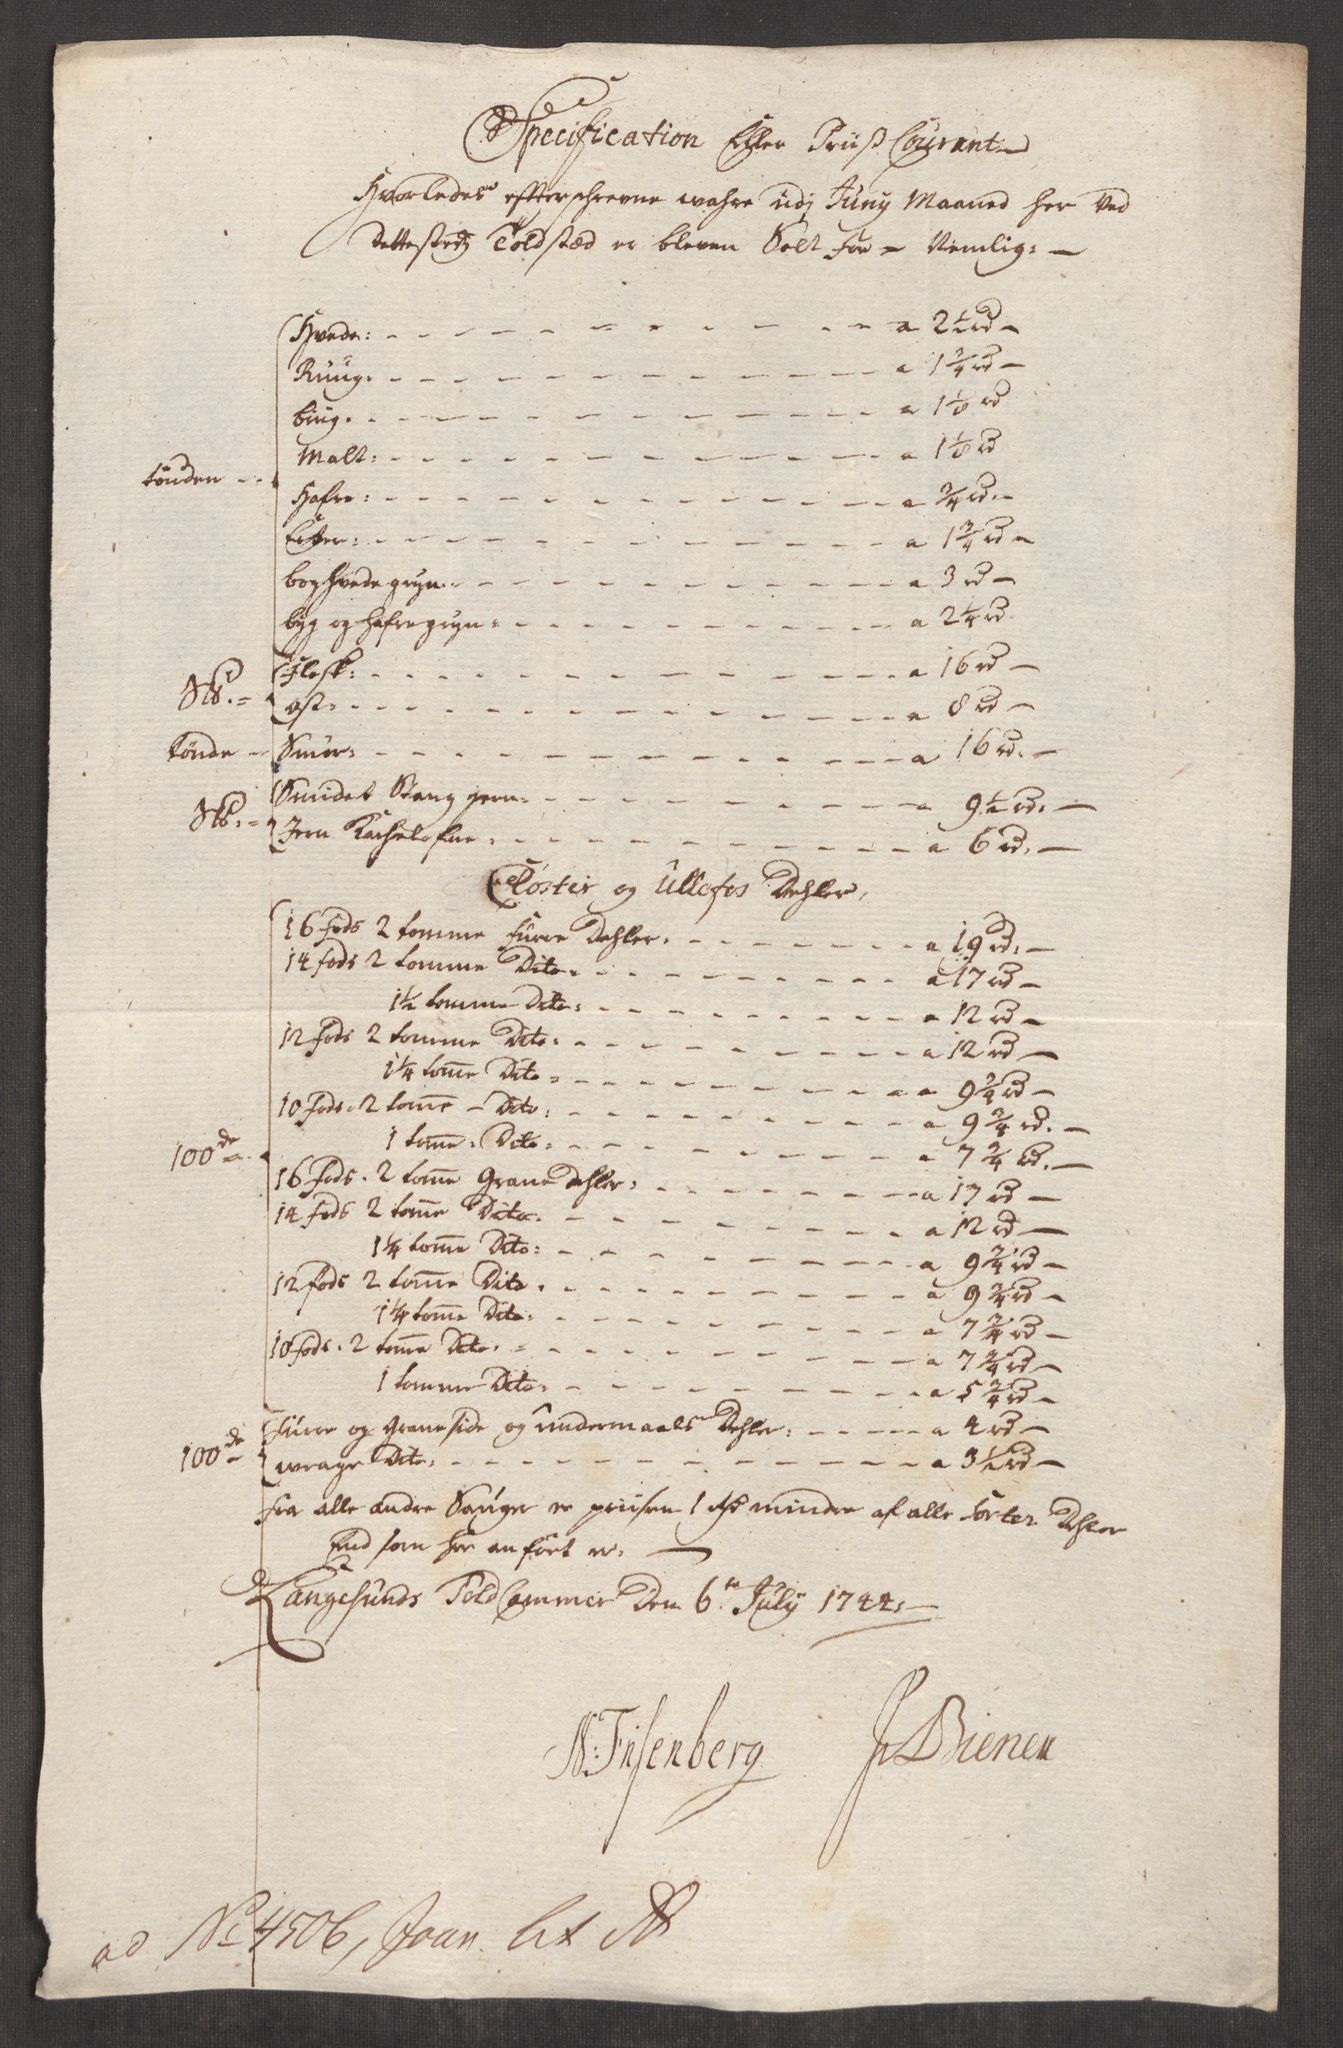 Specification Eller Priiß Courant
Hvorledes effterschrevne wahre udj Juny Maaned her ved
dettesteds Toldstæd er bleven Solt for - Nemlig:
Hvede: a 2 1/2 rd
Ruug. a 1 3/4 rd
biug. a 1 1/8 rd
Malt: a 1 1/8 rd
tønden
Hafre: a 3/4 rd.
Erter: a 1 3/4 rd
boghvede gryn. a 3 rd
byg og hafregryn: a 2 1/4 rd.
Flesk: a 16 rd
ost: a 8 rd
tønde Smør: a 16 rd.
Smidet Stang jern: a 9 1/2 rd.
Jern Kachelofne. a 6 rd.
Closter og Ullefos Dehler,
16 fods 2 tomme furre Dehler. a 19 rd.
14 fods 2 tomme Dito. a 17 rd
1 1/2 tomme Dito: a 12 rd
12 fods 2 tomme Dito. a 12 rd
1 1/4 tom̅e Dito a 9 3/4 rd
10 fods. 2 tom̅e Dito: a 9 3/4 rd.
1 tom̅e. Dito. a 7 3/4 rd.
100de
16 fods. 2 tom̅e Grane Dehler. a 17 rd
14 fods 2 tom̅e Dito. a 12 rd
1 1/4 tom̅e Dito: a 9 3/4 rd
12 fods 2 tom̅e Dito. a 9 3/4 rd
1 1/4 tom̅e Dito. a 7 3/4 rd
10 fods. 2 tom̅e Dito. a 7 3/4 rd
1 tomme Dito. a 5 3/4 rd
furre og Grane side og Undermaals Dehler. a 4 rd
100de wrage Dito. a 3 1/2 rd
fra alle andre Sauger er priisen 1 rd mindre af alle sorter Dehler
End som her anført er.
Langesunds Told Cammer Den 6te July 1744.
N: Fisenberg JBienen
ad No 4506, Joan. lit A